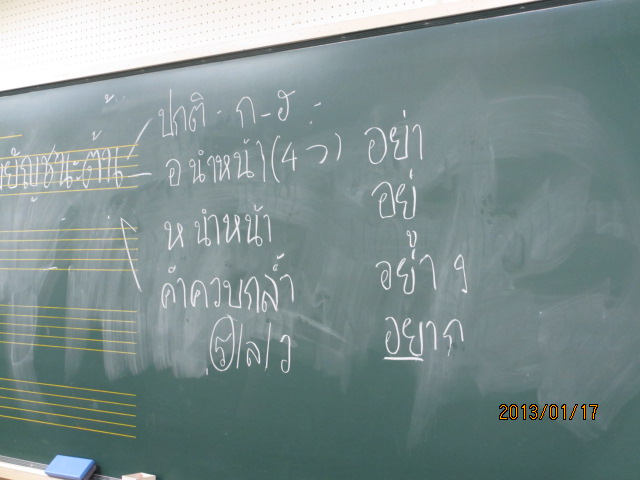 ปกติ - ก-ฮ
พยัญชนะต้น
อ นำหน้า (4
อย่า
อยู่
ห นำหน้า
คำควบกล้ำ
ร/ล/ว
อยาก
2013/01/17